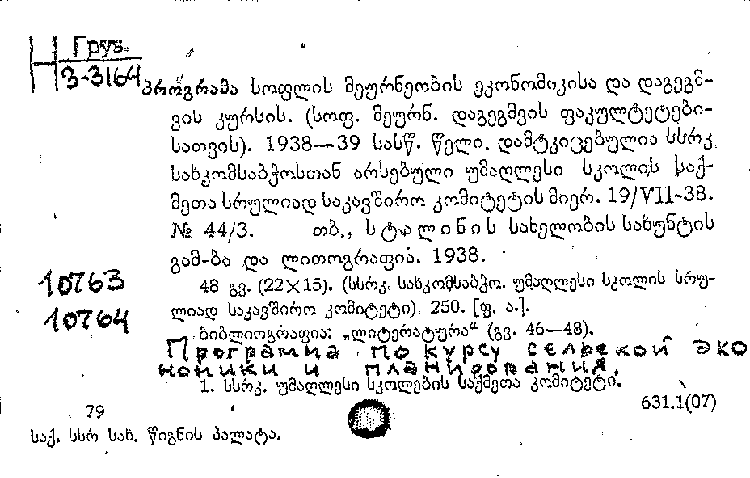 Н Груз.
3-3164
პროგრამა სოფლის მეურნეობის ეკონომიკისა და დაგეგმ-
ვის კურსის. (სოფ. მეურნ. დაგეგმვის ფაკულტეტები-
სათვის). 1938—39 სასწ. წელი. დამტკიცებულია სსრკ.
სახკომსაბჭოსთან არსებული უმაღლესი სკოლის საქ-
მეთა სრულიად საკავშირო კომიტეტის მიერ. 19/VII-38.
№ 44/3. თბ., სტალინის სახელობის სახუნტის
გამ-ბა და ლითოგრაფია. 1938.
10763
48 გვ. (22×15). (სსრკ. სახკომსაბჭო. უმაღლესი სკოლის სრუ-
ლიად საკავშირო კომიტეტი). 250. [ფ. ა.].
10764
ბიბლიოგრაფია: „ლიტერატურა“ (გვ. 46—48).
Программа по курсу сельской эко
номики и планирования.
1. სსრკ. უმაღლესი სკოლების საქმეთა კომიტეტი.
79
631.1(07)
საქ. სსრ სახ. წიგნის პალატა.